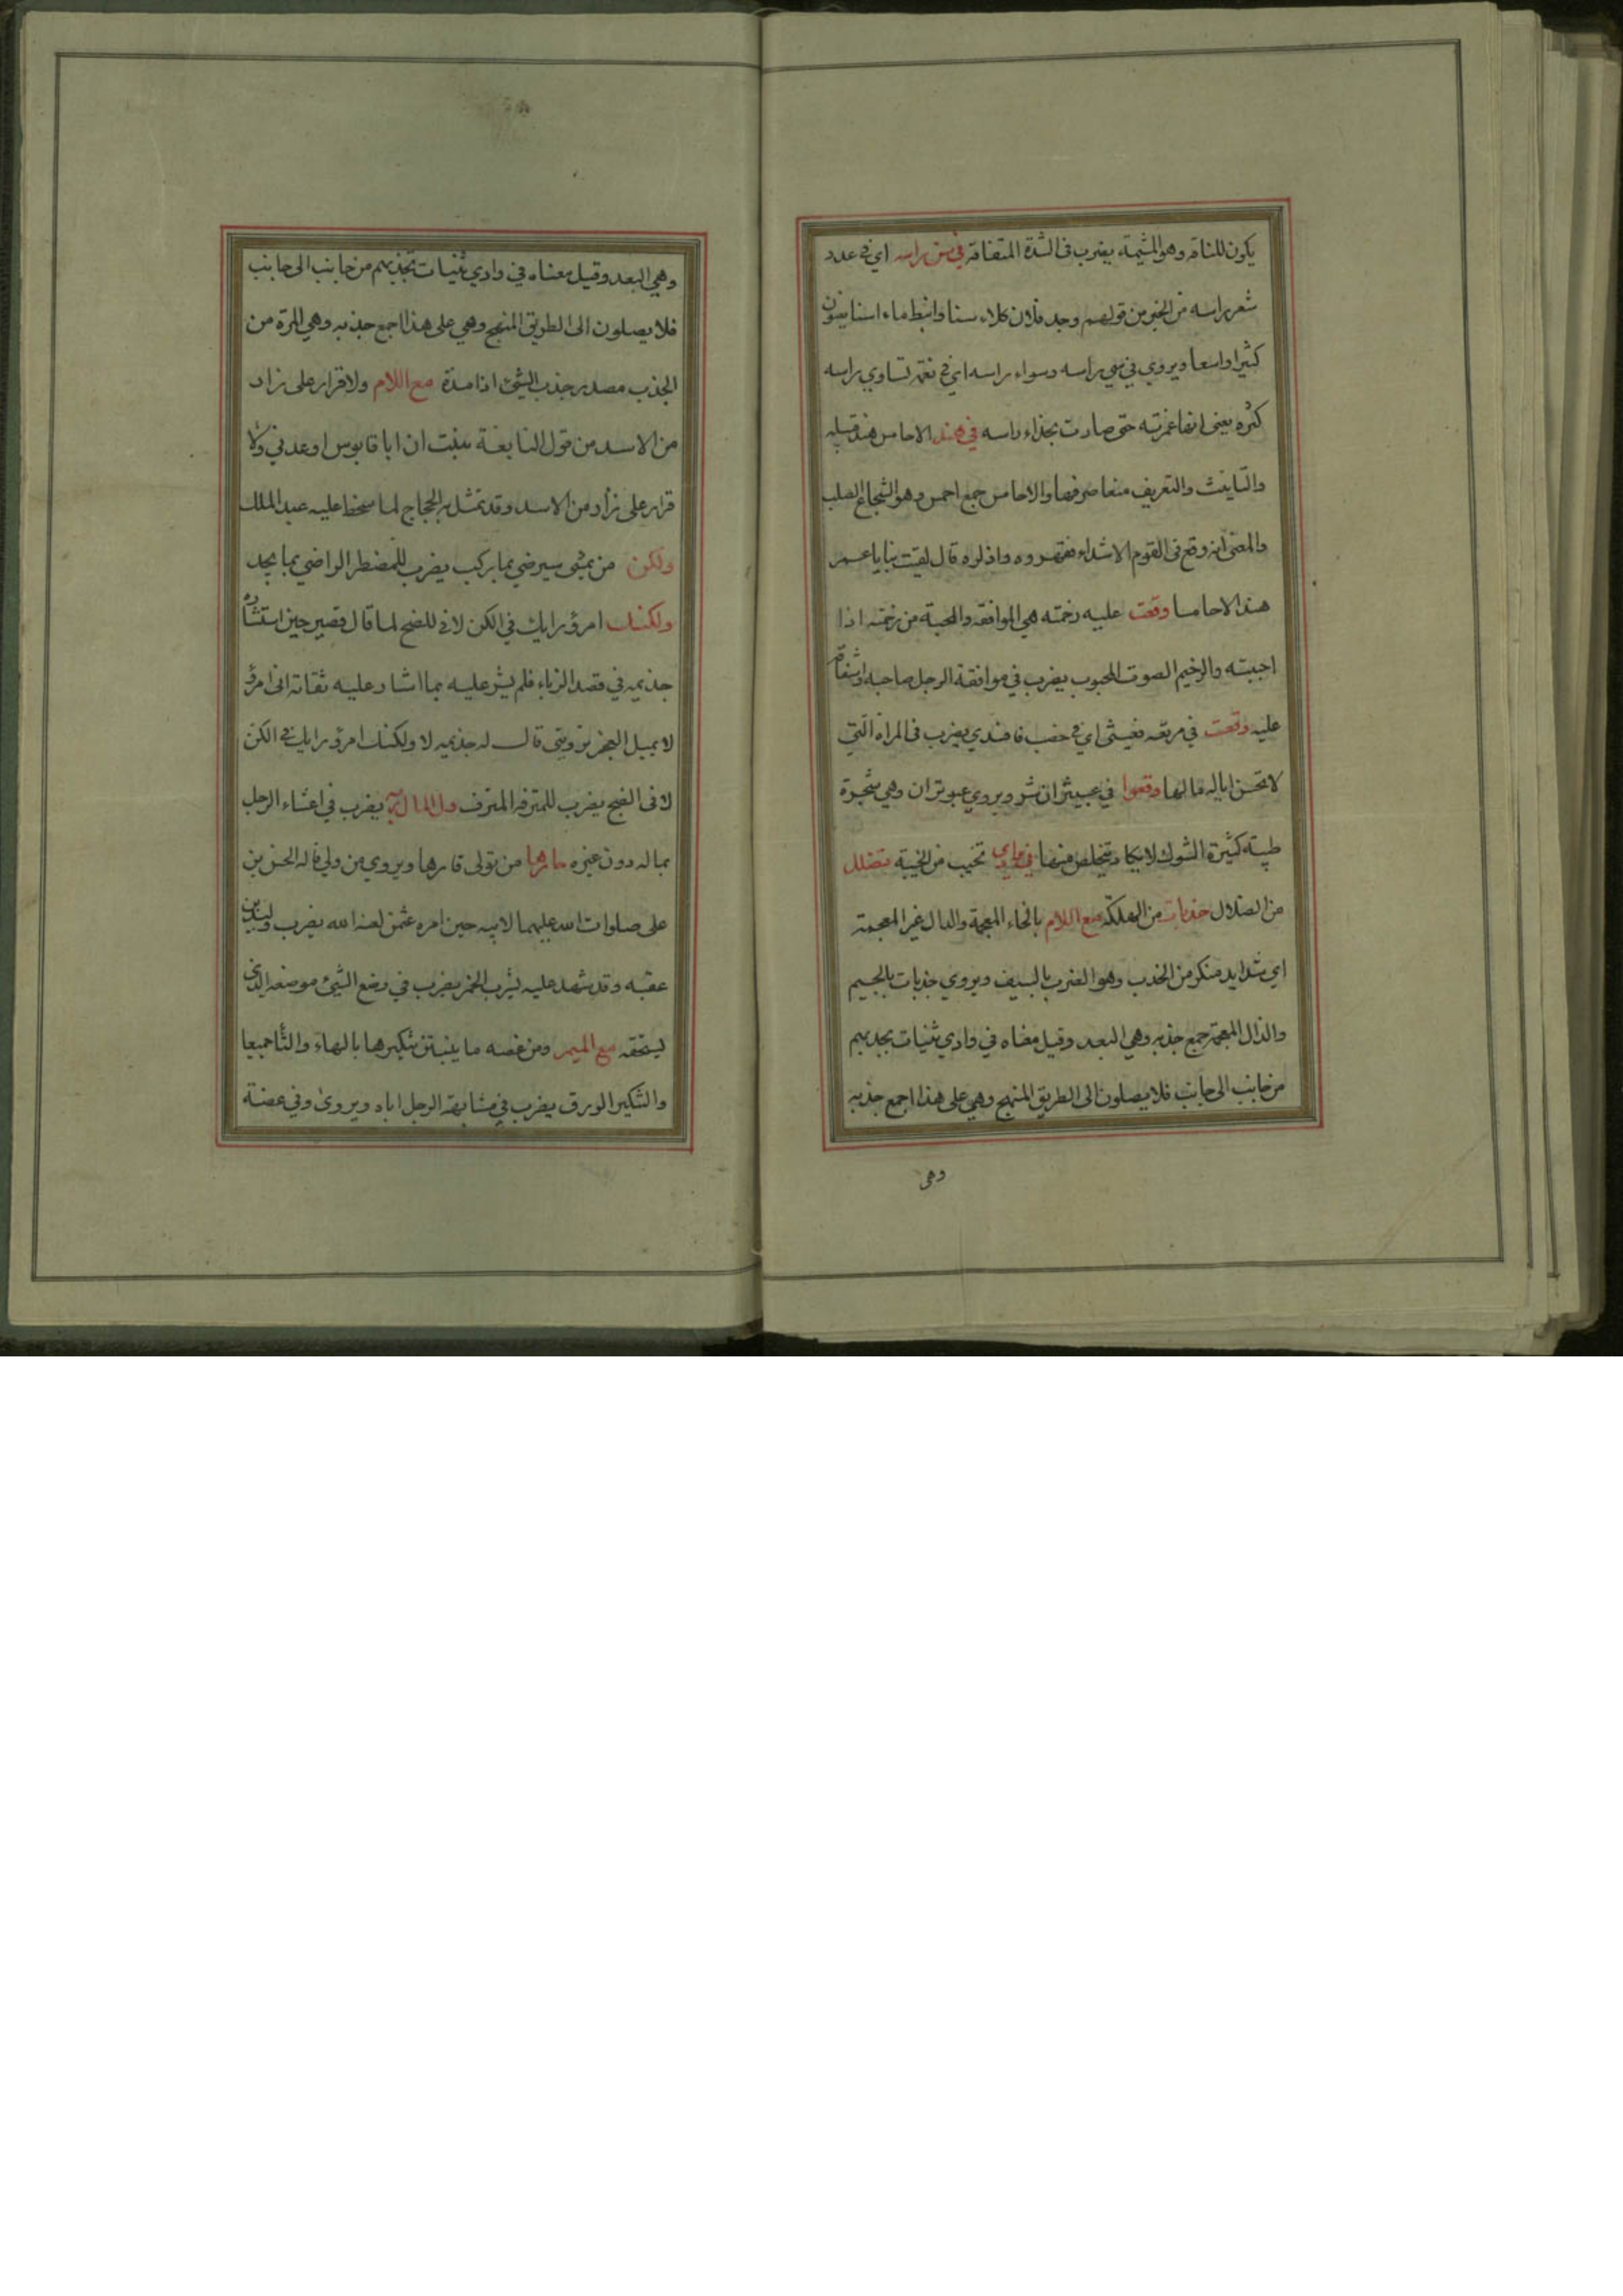 يكون للناقه وهو المشيمة يضرب في الشدة المتفاقه في سن راسه اي في عدد
شعر راسه من الخير من قولهم وجد فلان كلاء سنا وانبط ماء اسنا يعنون
كثيرا واسعا ويروي في سي راسه وسواء راسه اي في نعم تساوي راسه
كثره يعني انها غمرته حتى صارت بحذاء راسه في هند الاحامس هند قبيله
والتانيث والتعريف منعا صرفها والاحامس جمع احمس وهو الشجاع الصلب
والمعنى انه وقع في القوم الاشداء فقهروه واذلوه قال لقيت بنا يا عمر
هند الاحامسا وقعت عليه رخمته هي الموافقه والمحبة من رخمته اذا
احببته والرخيم الصوت المحبوب يضرب في موافقة الرجل صاحبه واشفاقه
عليه وقعت في مرتعه فعيثى اي في خصب فافسدي يضرب في المراة التي
لا تحسن ايالة مالها وقعوا في عبيثران شر ويروي عبوثران وهي شجرة
طيبة كثيرة الشوك لا يكاد يتخلص منها في وادي تخيب من الخيبة تضلل
من الضلال خدبات من الهلكة مع اللام بالخاء المعجمة والدال غير المعجمة
اي شدايد منكر من الخدب وهو الضرب بالسيف ويروي جذبات بالجيم
والذال المعجمة جمع جذبه وهي البعد وقيل معناه في وادي ثنيات يجذبهم
من جانب الى جانب فلا يصلون الى الطريق المنهج وهي على هذا اجمع جذبه
وهى
وهي البعد وقيل معناه في وادي ثنيات تجذبهم من جانب الى جانب
فلا يصلون الى الطريق المنهج وهي على هذا جمع جذبه وهي المرة من
الجذب مصدر جذب الشيئ اذا مدة مع اللام ولا قرار على زار
من الاسد من قول النابغة نبئت ان ابا قابوس اوعدني ولا
قرار على زأر من الاسد وقد تمثل به الحجاج لما سخط عليه عبد الملك
ولكن من يمشي سيرضي بما يركب يضرب للمضطر الراضي بما يجد
ولكنك امرؤ رايك في الكن لا في الضح لما قال قصير حين استشاره
جذيمه في قصد الزباء فلم يشر عليه بما اشار عليه ثقاته انى امرؤ
لا يميل العجز ترويتي قال له جذيمه لا ولكنك امرؤ رايك في الكن
لا في الضح يضرب للمترفه المترف ول المال ربه يضرب في اعشاء الرجل
بماله دون غيره حارها من تولى قارها ويروي من ولي قاله الحسن بن
على صلوات الله عليهما لابيه حين امره عثمن لعنه الله بضرب وليد بن
عقبه وقد شهد عليه بشرب الخمر يضرب في وضع الشيئ موضعه الذي
يستحقه مع الميم ومن عضه ما ينبتن شكيرها بالهاء والتا جميعا
والشكير الورق يضرب في مشابهة الرجل اباه ويروى وفي عضة